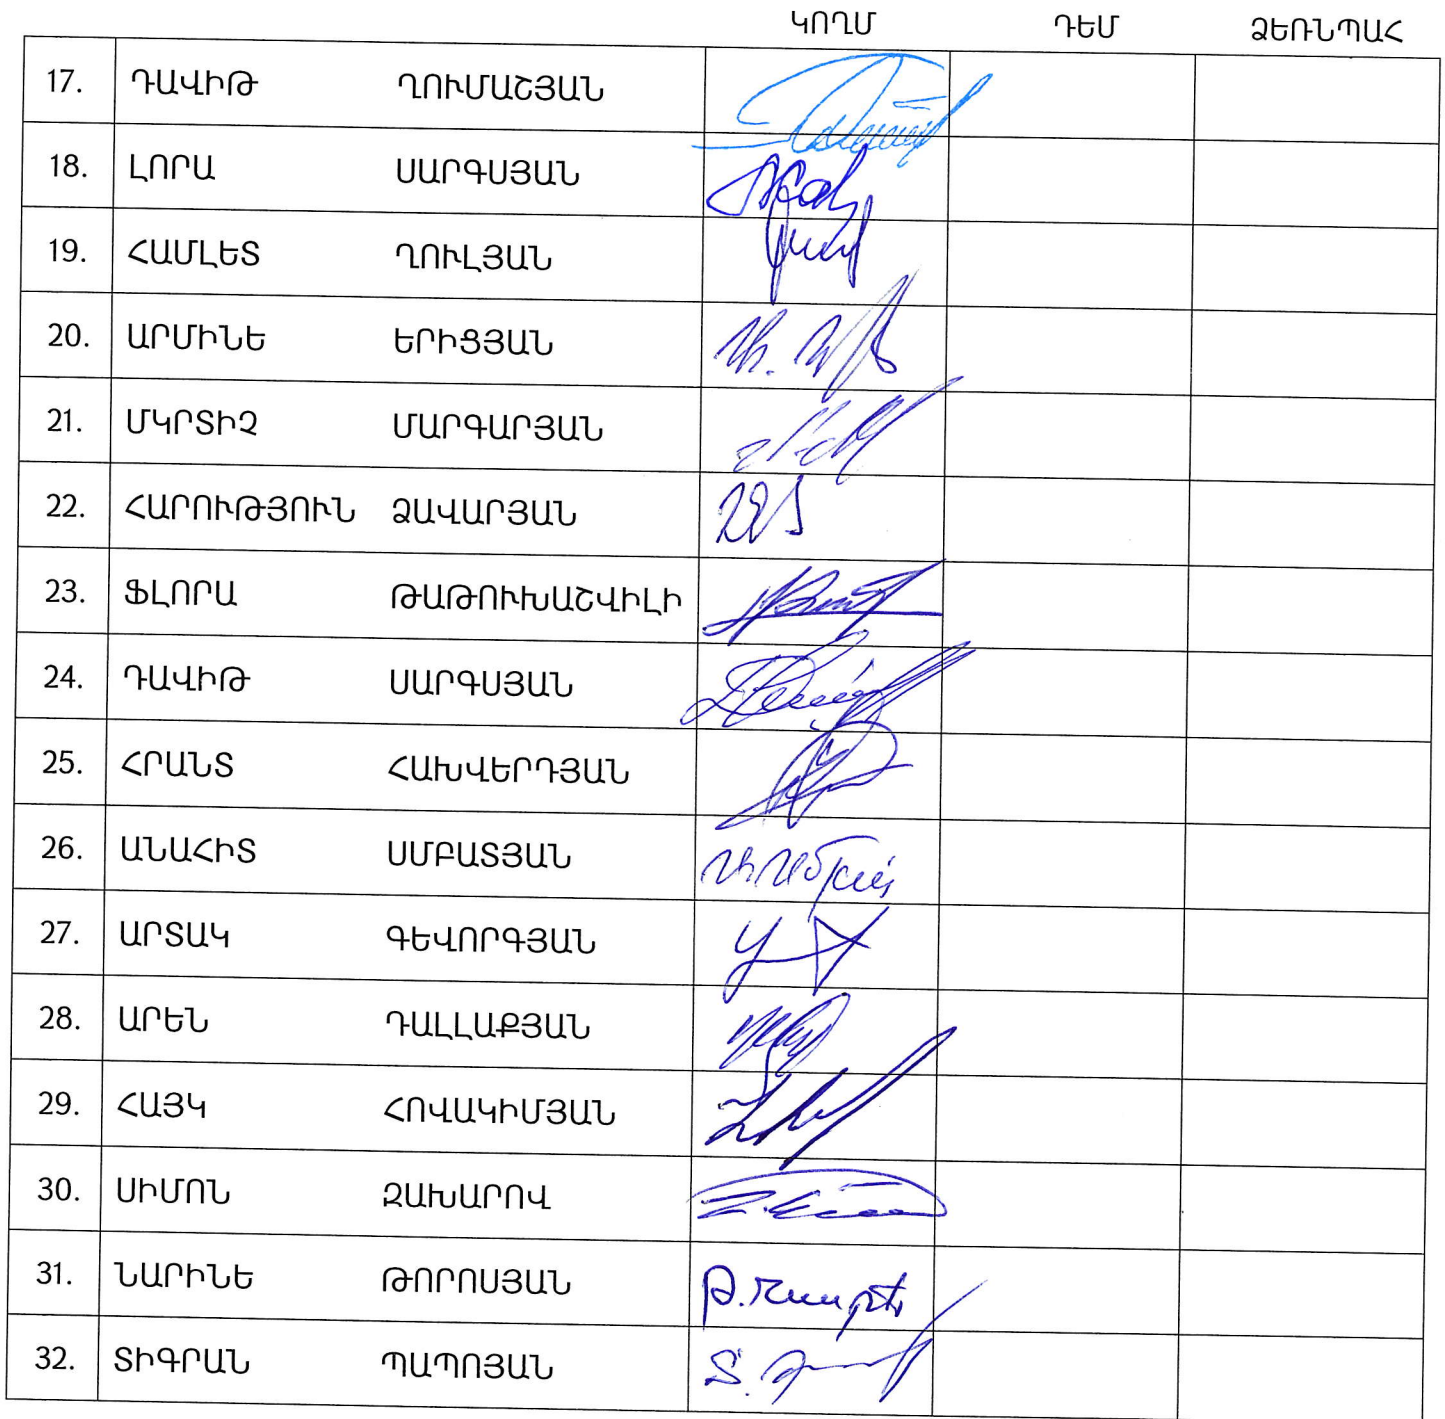 ԿՈՂՄ ԴԵՄ ՁԵՌՆՊԱՀ
17. ԴԱՎԻԹ ՂՈՒՄԱՇՅԱՆ
18. ԼՈՐԱ ՍԱՐԳՍՅԱՆ
19. ՀԱՄԼԵՏ ՂՈՒԼՅԱՆ
20. ԱՐՄԻՆԵ ԵՐԻՑՅԱՆ
21. ՄԿՐՏԻՉ ՄԱՐԳԱՐՅԱՆ
22. ՀԱՐՈՒԹՅՈՒՆ ՁԱՎԱՐՅԱՆ
23. ՖԼՈՐԱ ԹԱԹՈՒԽԱՇՎԻԼԻ
24. ԴԱՎԻԹ ՍԱՐԳՍՅԱՆ
25. ՀՐԱՆՏ ՀԱԽՎԵՐԴՅԱՆ
26. ԱՆԱՀԻՏ ՍՄԲԱՏՅԱՆ
27. ԱՐՏԱԿ ԳԵՎՈՐԳՅԱՆ
28. ԱՐԵՆ ԴԱԼԼԱՔՅԱՆ
29. ՀԱՅԿ ՀՈՎԱԿԻՄՅԱՆ
30. ՍԻՄՈՆ ԶԱԽԱՐՈՎ
31. ՆԱՐԻՆԵ ԹՈՐՈՍՅԱՆ
32. ՏԻԳՐԱՆ ՊԱՊՈՅԱՆ